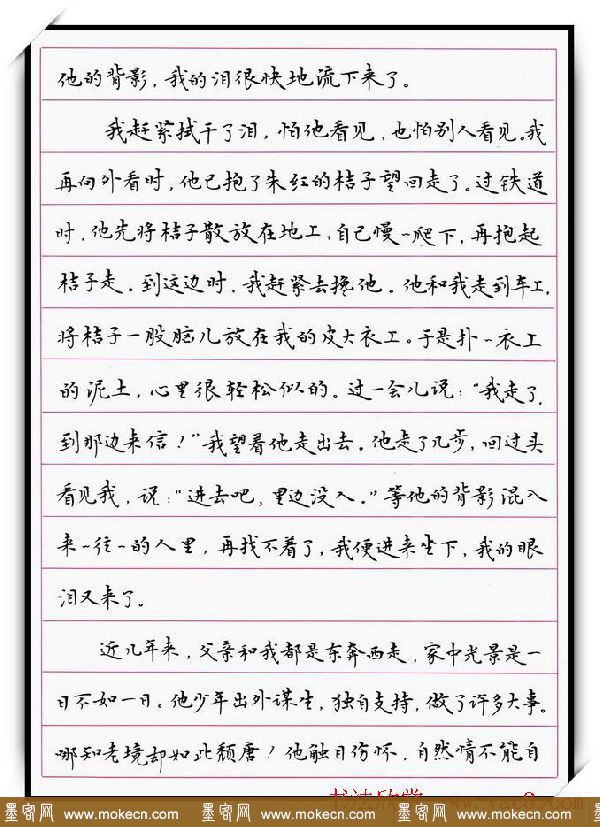 他的背影，我的泪很快地流下来了。
我赶紧拭干了泪，怕他看见，也怕别人看见。我
再向外看时，他已抱了朱红的桔子望回走了。过铁道
时，他先将桔子散放在地上，自己慢慢爬下，再抱起
桔子走。到这边时，我赶紧去搀他。他和我走到车上，
将桔子一股脑儿放在我的皮大衣上。于是扑扑衣上
的泥土，心里很轻松似的。过一会儿说：“我走了，
到那边来信！”我望着他走出去。他走了几步，回过头
看见我，说：“进去吧，里边没人。”等他的背影混入
来来往往的人里，再找不着了，我便进来坐下，我的眼
泪又来了。
近几年来，父亲和我都是东奔西走，家中光景是一
日不如一日。他少年出外谋生，独自支持，做了许多大事。
哪知老境却如此颓唐！他触目伤怀，自然情不能自
书法欣赏
墨客网 www.mokecn.com 墨客网 www.mokecn.com 墨客网 www.mokecn.com